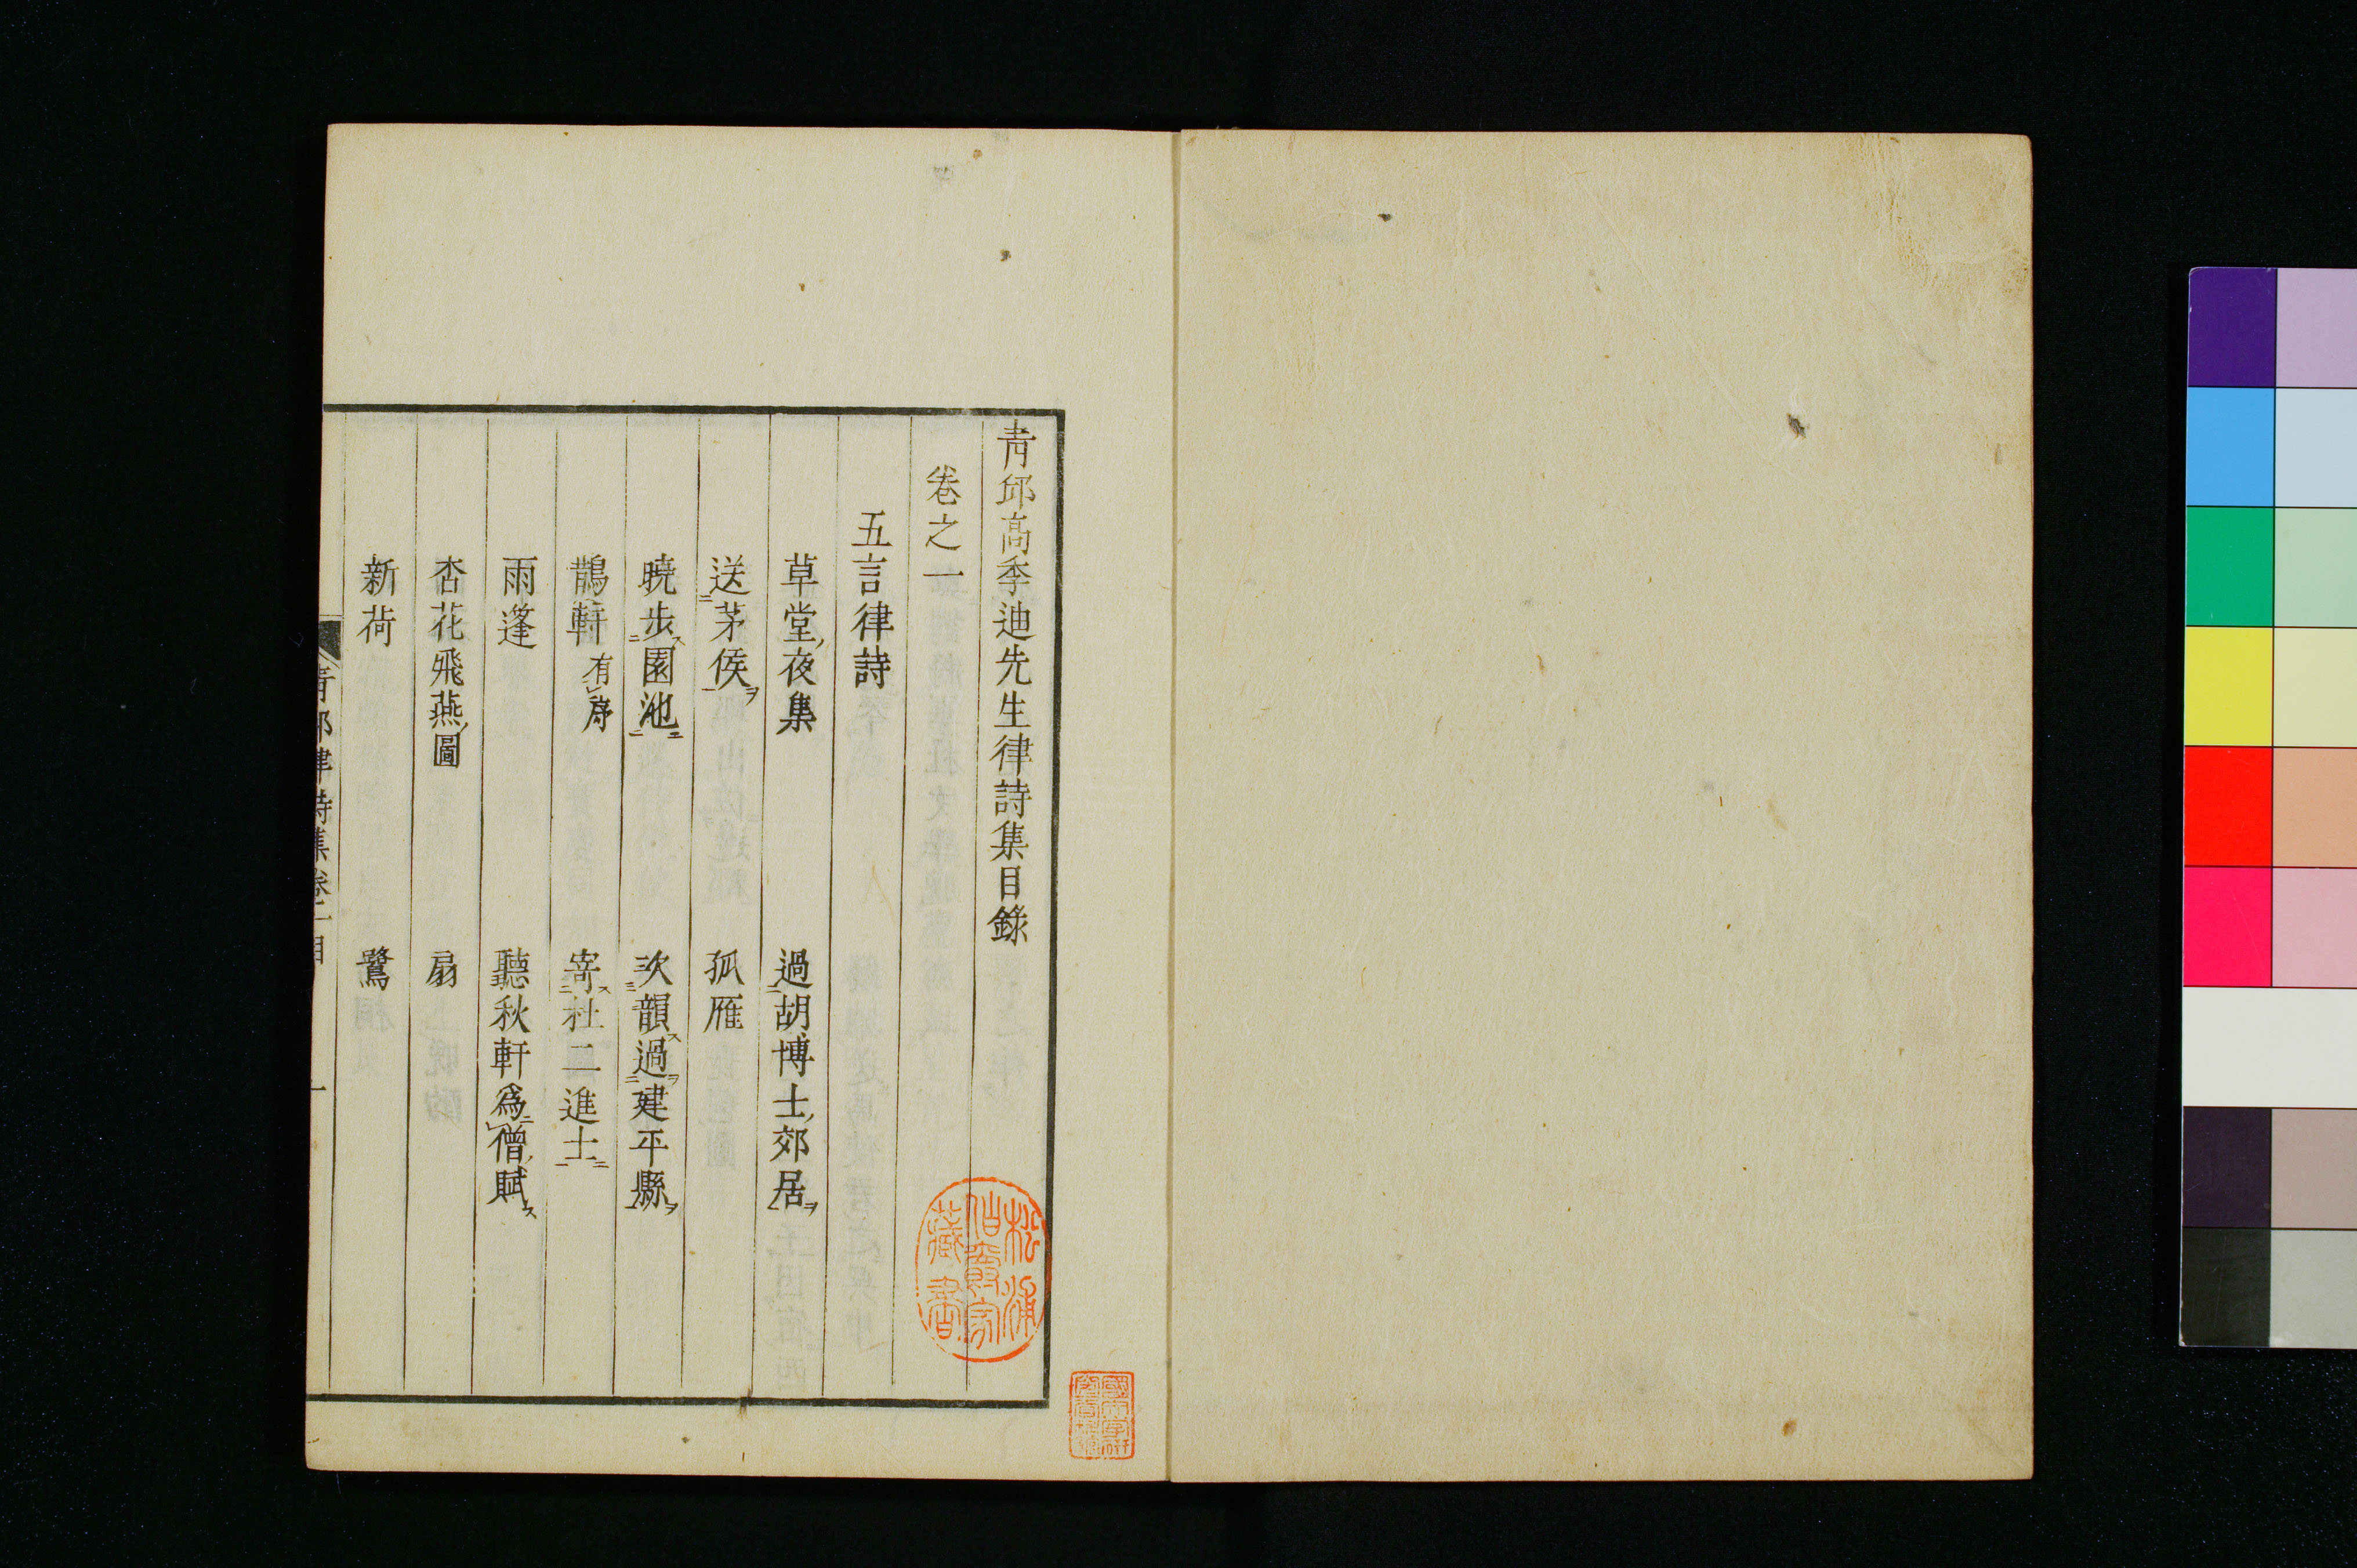 青邱高季迪先生律詩集目錄
卷之一
五言律詩
草堂夜集　過胡博士郊居
送茅侯　孤雁
曉步園池　次韻過建平縣
鵲軒有序　寄杜二進士
雨蓬　聽秋軒爲僧賦
杏花飛燕圖　扇
新荷　鷺
青邱律詩集卷一目　一
松浦
伯爵家
藏書